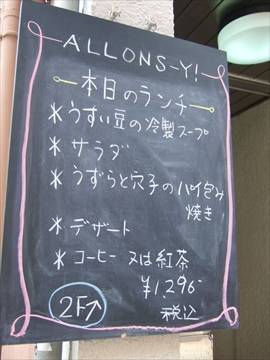 ALLONS-Y!
本日のランチ
* うすい豆の冷製スープ
* サラダ
* うずらと穴子のパイ包み
焼き
* デザート
* コーヒー 又は紅茶
¥1,296-
税込
2F↑